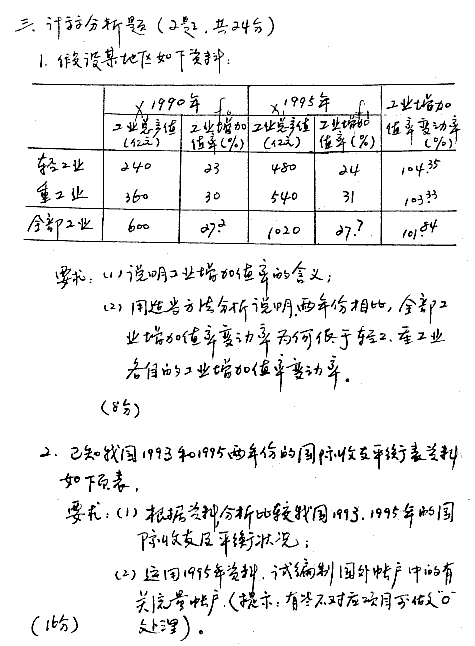 三、计算分析题(2题,共24分)
1. 假设某地区如下资料:
1990年 1995年 工业增加值率变动率
工业总产值(亿元) 工业增加值率(%) 工业总产值(亿元) 工业增加值率(%)
轻工业 240 23 480 24 104.35
重工业 360 30 540 31 103.33
全部工业 600 27.2 1020 27.7 101.84
要求:(1)说明工业增加值率的含义;
(2)用适当方法分析说明,两年份相比,全部工
业增加值率变动率为何低于轻工、重工业
各自的工业增加值率变动率。
(8分)
2. 已知我国1993和1995两年份的国际收支平衡表资料
如下页表,
要求:(1)根据资料分析比较我国1993、1995年的国
际收支及平衡状况;
(2)运用1995年资料,试编制国外帐户中的有
关流量帐户。(提示:有些不对应项目可做"0"
(16分) 处理)。